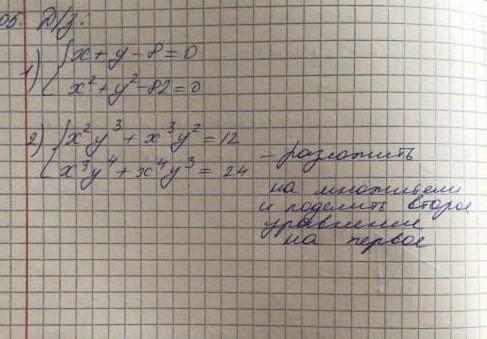 05. Д/з.
1) { x + y - 8 = 0
x² + y² - 82 = 0
2) { x²y³ + x³y² = 12
x³y⁴ + x⁴y³ = 24
- разложить
на множители
и поделить второе
уравнение
на первое